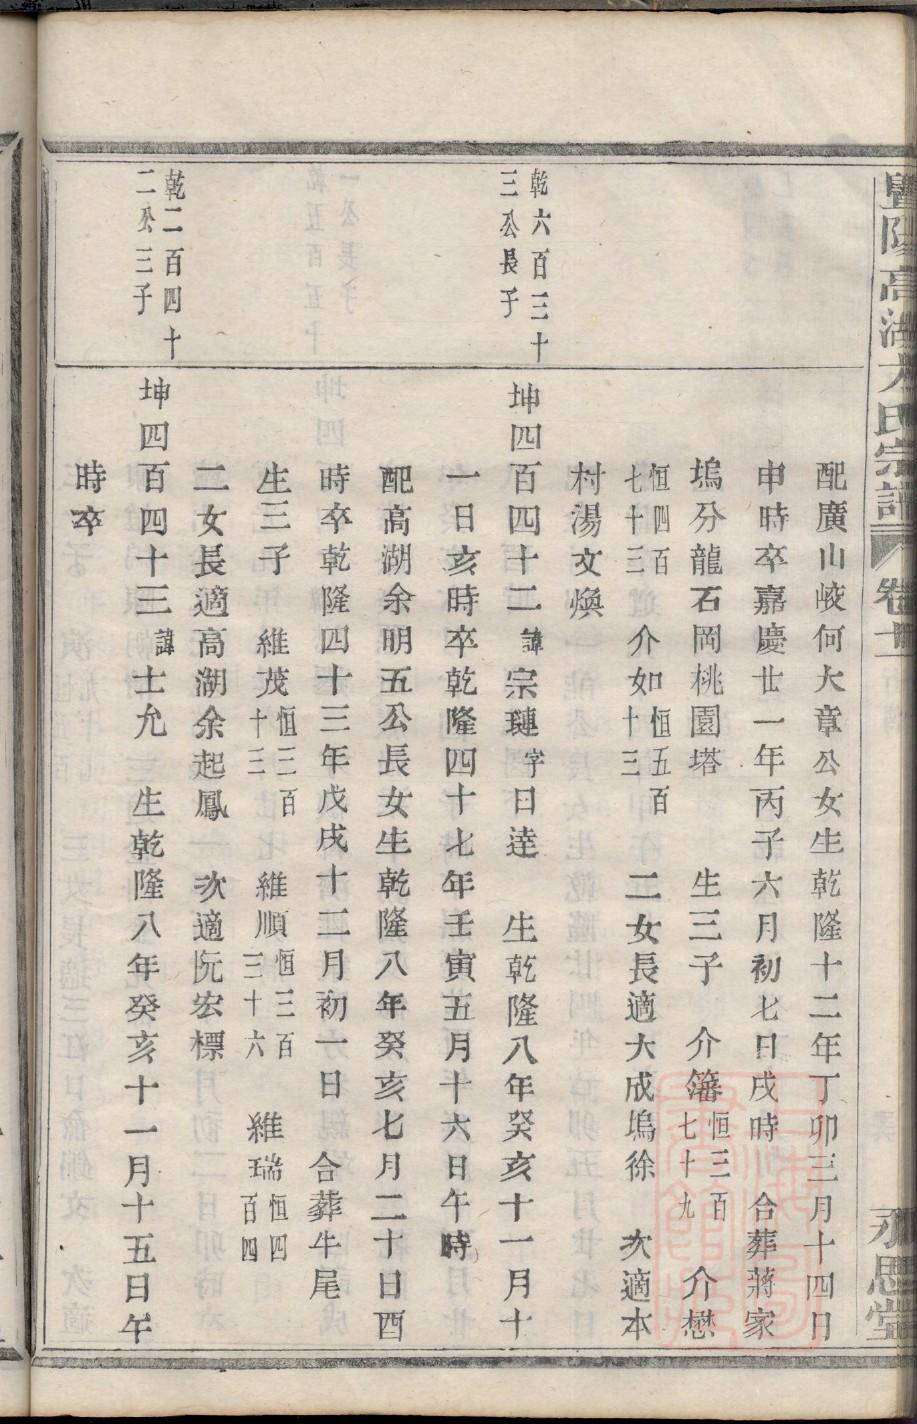 暨陽高湖 氏宗譜 卷 永思堂
配廣山峧何大章公女生乾隆十二年丁卯三月十四日
申時卒嘉慶廿一年丙子六月初七日戌時 合葬蔣家
塢分龍石岡桃園塔 生三子 介籓恒三百七十九 介懋
恒四百七十三 介如恒五百十三 二女長適大成塢徐 次適本
村湯文煥
乾六百三十三公長子
坤四百四十二諱宗璉字曰達 生乾隆八年癸亥十一月十
一日亥時卒乾隆四十七年壬寅五月十六日午時
配高湖余明五公長女生乾隆八年癸亥七月二十日酉
時卒乾隆四十三年戊戌十二月初一日 合葬牛尾
生三子 維茂恒二百十三 維順恒三百三十六 維瑞恒四百四
二女長適高湖余起鳳 次適阮宏標
乾二百四十二公三子
坤四百四十三諱士允 生乾隆八年癸亥十一月十五日午
時卒